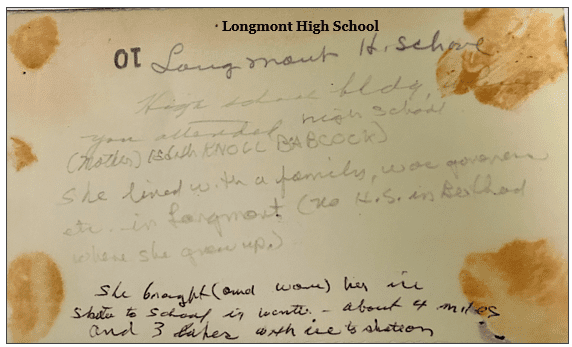 Longmont High School
10 Longmont H. School
High school bldg,
you attended High School
(Mother) Edith KNOLL BABCOCK)
She lived with a family, was governess
etc. in Longmont (no H.S. in Berthod
where she grew up.)
She brought (and wore) her ice
skates to school in winter - about 4 miles
and 3 lakes with ice to skate on